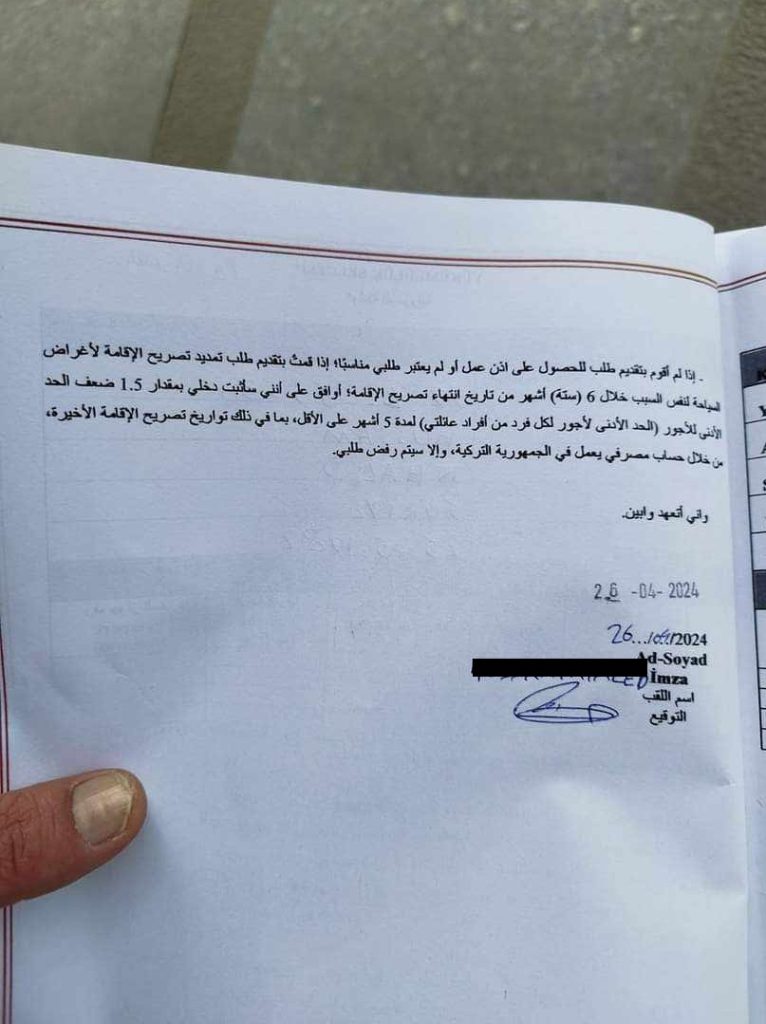 - إذا لم أقوم بتقديم طلب للحصول على اذن عمل أو لم يعتبر طلبي مناسبًا؛ إذا قمتُ بتقديم طلب تمديد تصريح الإقامة لأغراض
السياحة لنفس السبب خلال 6 (ستة) أشهر من تاريخ انتهاء تصريح الإقامة؛ أوافق على أنني سأثبت دخلي بمقدار 1.5 ضعف الحد
الأدنى للأجور (الحد الأدنى لأجور لكل فرد من أفراد عائلتي) لمدة 5 أشهر على الأقل، بما في ذلك تواريخ تصريح الإقامة الأخيرة،
من خلال حساب مصرفي يعمل في الجمهورية التركية، وإلا سيتم رفض طلبي.
واني أتعهد وابين.
26 -04- 2024
26.../04/2024
Ad-Soyad
İmza
اسم اللقب
التوقيع